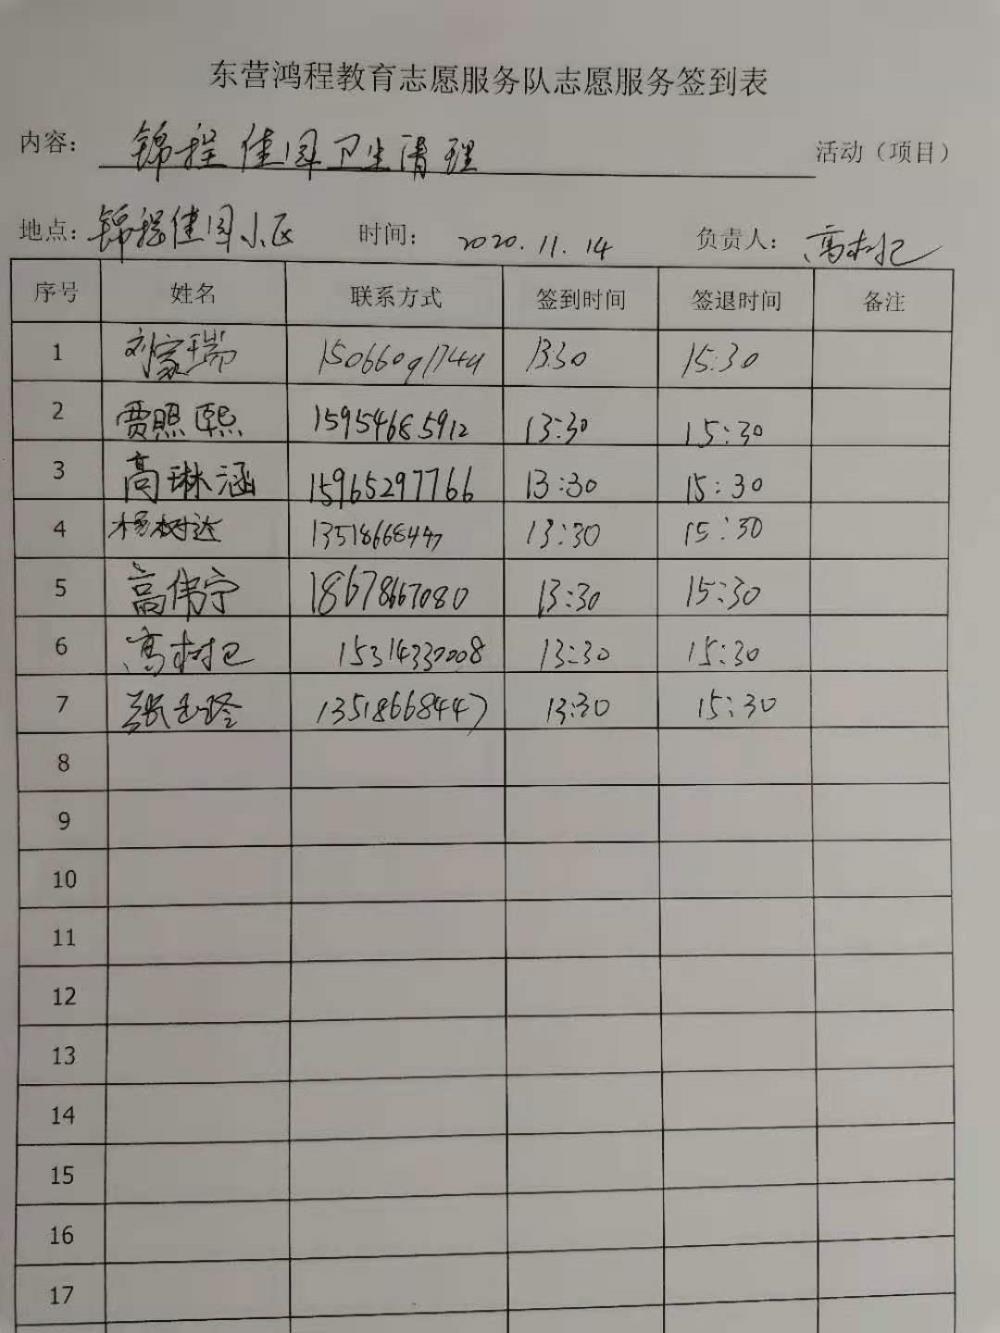 东营鸿程教育志愿服务队志愿服务签到表
内容： 锦程佳园卫生清理 活动（项目）
地点：锦程佳园小区 时间： 2020.11.14 负责人：高树
序号 姓名 联系方式 签到时间 签退时间 备注
1 刘家瑞 1506609 13:30 15:30
2 贾照熙 15954685912 13:30 15:30
3 高琳涵 15965297766 13:30 15:30
4 杨树达 13518668447 13:30 15:30
5 高伟宁 18678667080 13:30 15:30
6 高树 13:30 15:30
7 张玉 13518668447 13:30 15:30
8
9
10
11
12
13
14
15
16
17